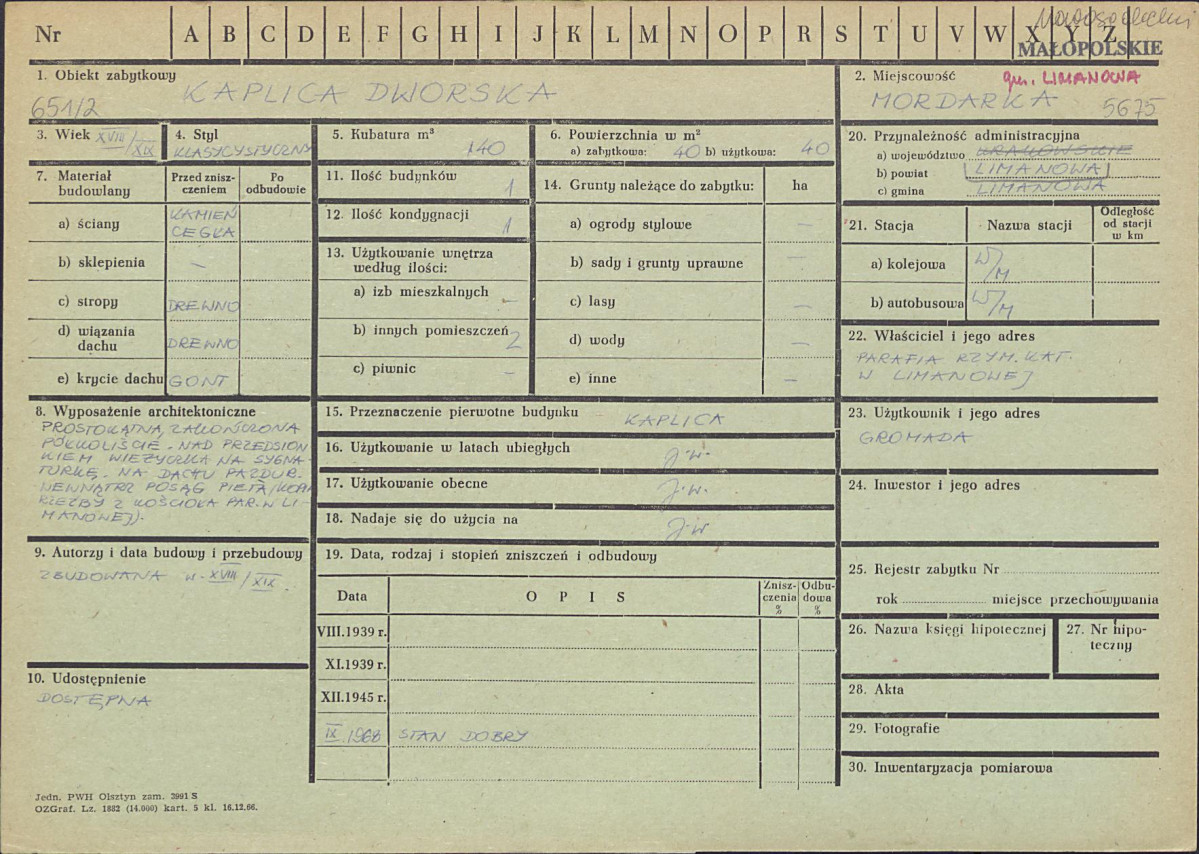 Nr A B C D E F G H I J K L M N O P R S T U V W X Y Z
MAŁOPOLSKIE
1. Obiekt zabytkowy
KAPLICA DWORSKA
651/2
2. Miejscowość
gm. LIMANOWA
MORDARKA 5675
3. Wiek XVIII/XIX
4. Styl
KLASYCYSTYCZNY
5. Kubatura m³
140
6. Powierzchnia w m²
a) zabytkowa: 40 b) użytkowa: 40
7. Materiał budowlany
Przed zniszczeniem
Po odbudowie
a) ściany
KAMIEŃ
CEGŁA
b) sklepienia –
c) stropy DREWNO
d) wiązania dachu DREWNO
e) krycie dachu GONT
8. Wyposażenie architektoniczne
PROSTOKĄTNA, ZAKOŃCZONA
PÓŁKOLIŚCIE. NAD PRZEDSION
KIEM WIEŻYCZKA NA SYGNA-
TURKĘ. NA DACHU PAZDUR.
WEWNĄTRZ POSĄG PIETA/KOPIA
RZEŹBY Z KOŚCIOŁA PAR. W LI-
MANOWEJ).
9. Autorzy i data budowy i przebudowy
ZBUDOWANA W. XVIII/XIX
10. Udostępnienie
DOSTĘPNA
11. Ilość budynków
1
12. Ilość kondygnacji
1
13. Użytkowanie wnętrza
według ilości:
a) izb mieszkalnych –
b) innych pomieszczeń 2
c) piwnic –
14. Grunty należące do zabytku: ha
a) ogrody stylowe –
b) sady i grunty uprawne –
c) lasy –
d) wody –
e) inne –
15. Przeznaczenie pierwotne budynku KAPLICA
16. Użytkowanie w latach ubiegłych J.W.
17. Użytkowanie obecne J.W.
18. Nadaje się do użycia na J.W
19. Data, rodzaj i stopień zniszczeń i odbudowy
Data OPIS Zniszczenia % Odbudowa %
VIII.1939 r.
XI.1939 r.
XII.1945 r.
IX.1968 STAN DOBRY
20. Przynależność administracyjna
a) województwo KRAKOWSKIE
b) powiat LIMANOWA
c) gmina LIMANOWA
21. Stacja Nazwa stacji Odległość od stacji w km
a) kolejowa W/M
b) autobusowa W/M
22. Właściciel i jego adres
PARAFIA RZYM. KAT.
W LIMANOWEJ
23. Użytkownik i jego adres
GROMADA
24. Inwestor i jego adres
25. Rejestr zabytku Nr
rok miejsce przechowywania
26. Nazwa księgi hipotecznej
27. Nr hipo-
teczny
28. Akta
29. Fotografie
30. Inwentaryzacja pomiarowa
Jedn. PWH Olsztyn zam. 3991 S
OZGraf. Lz. 1882 (14.000) kart. 5 kl. 16.12.66.